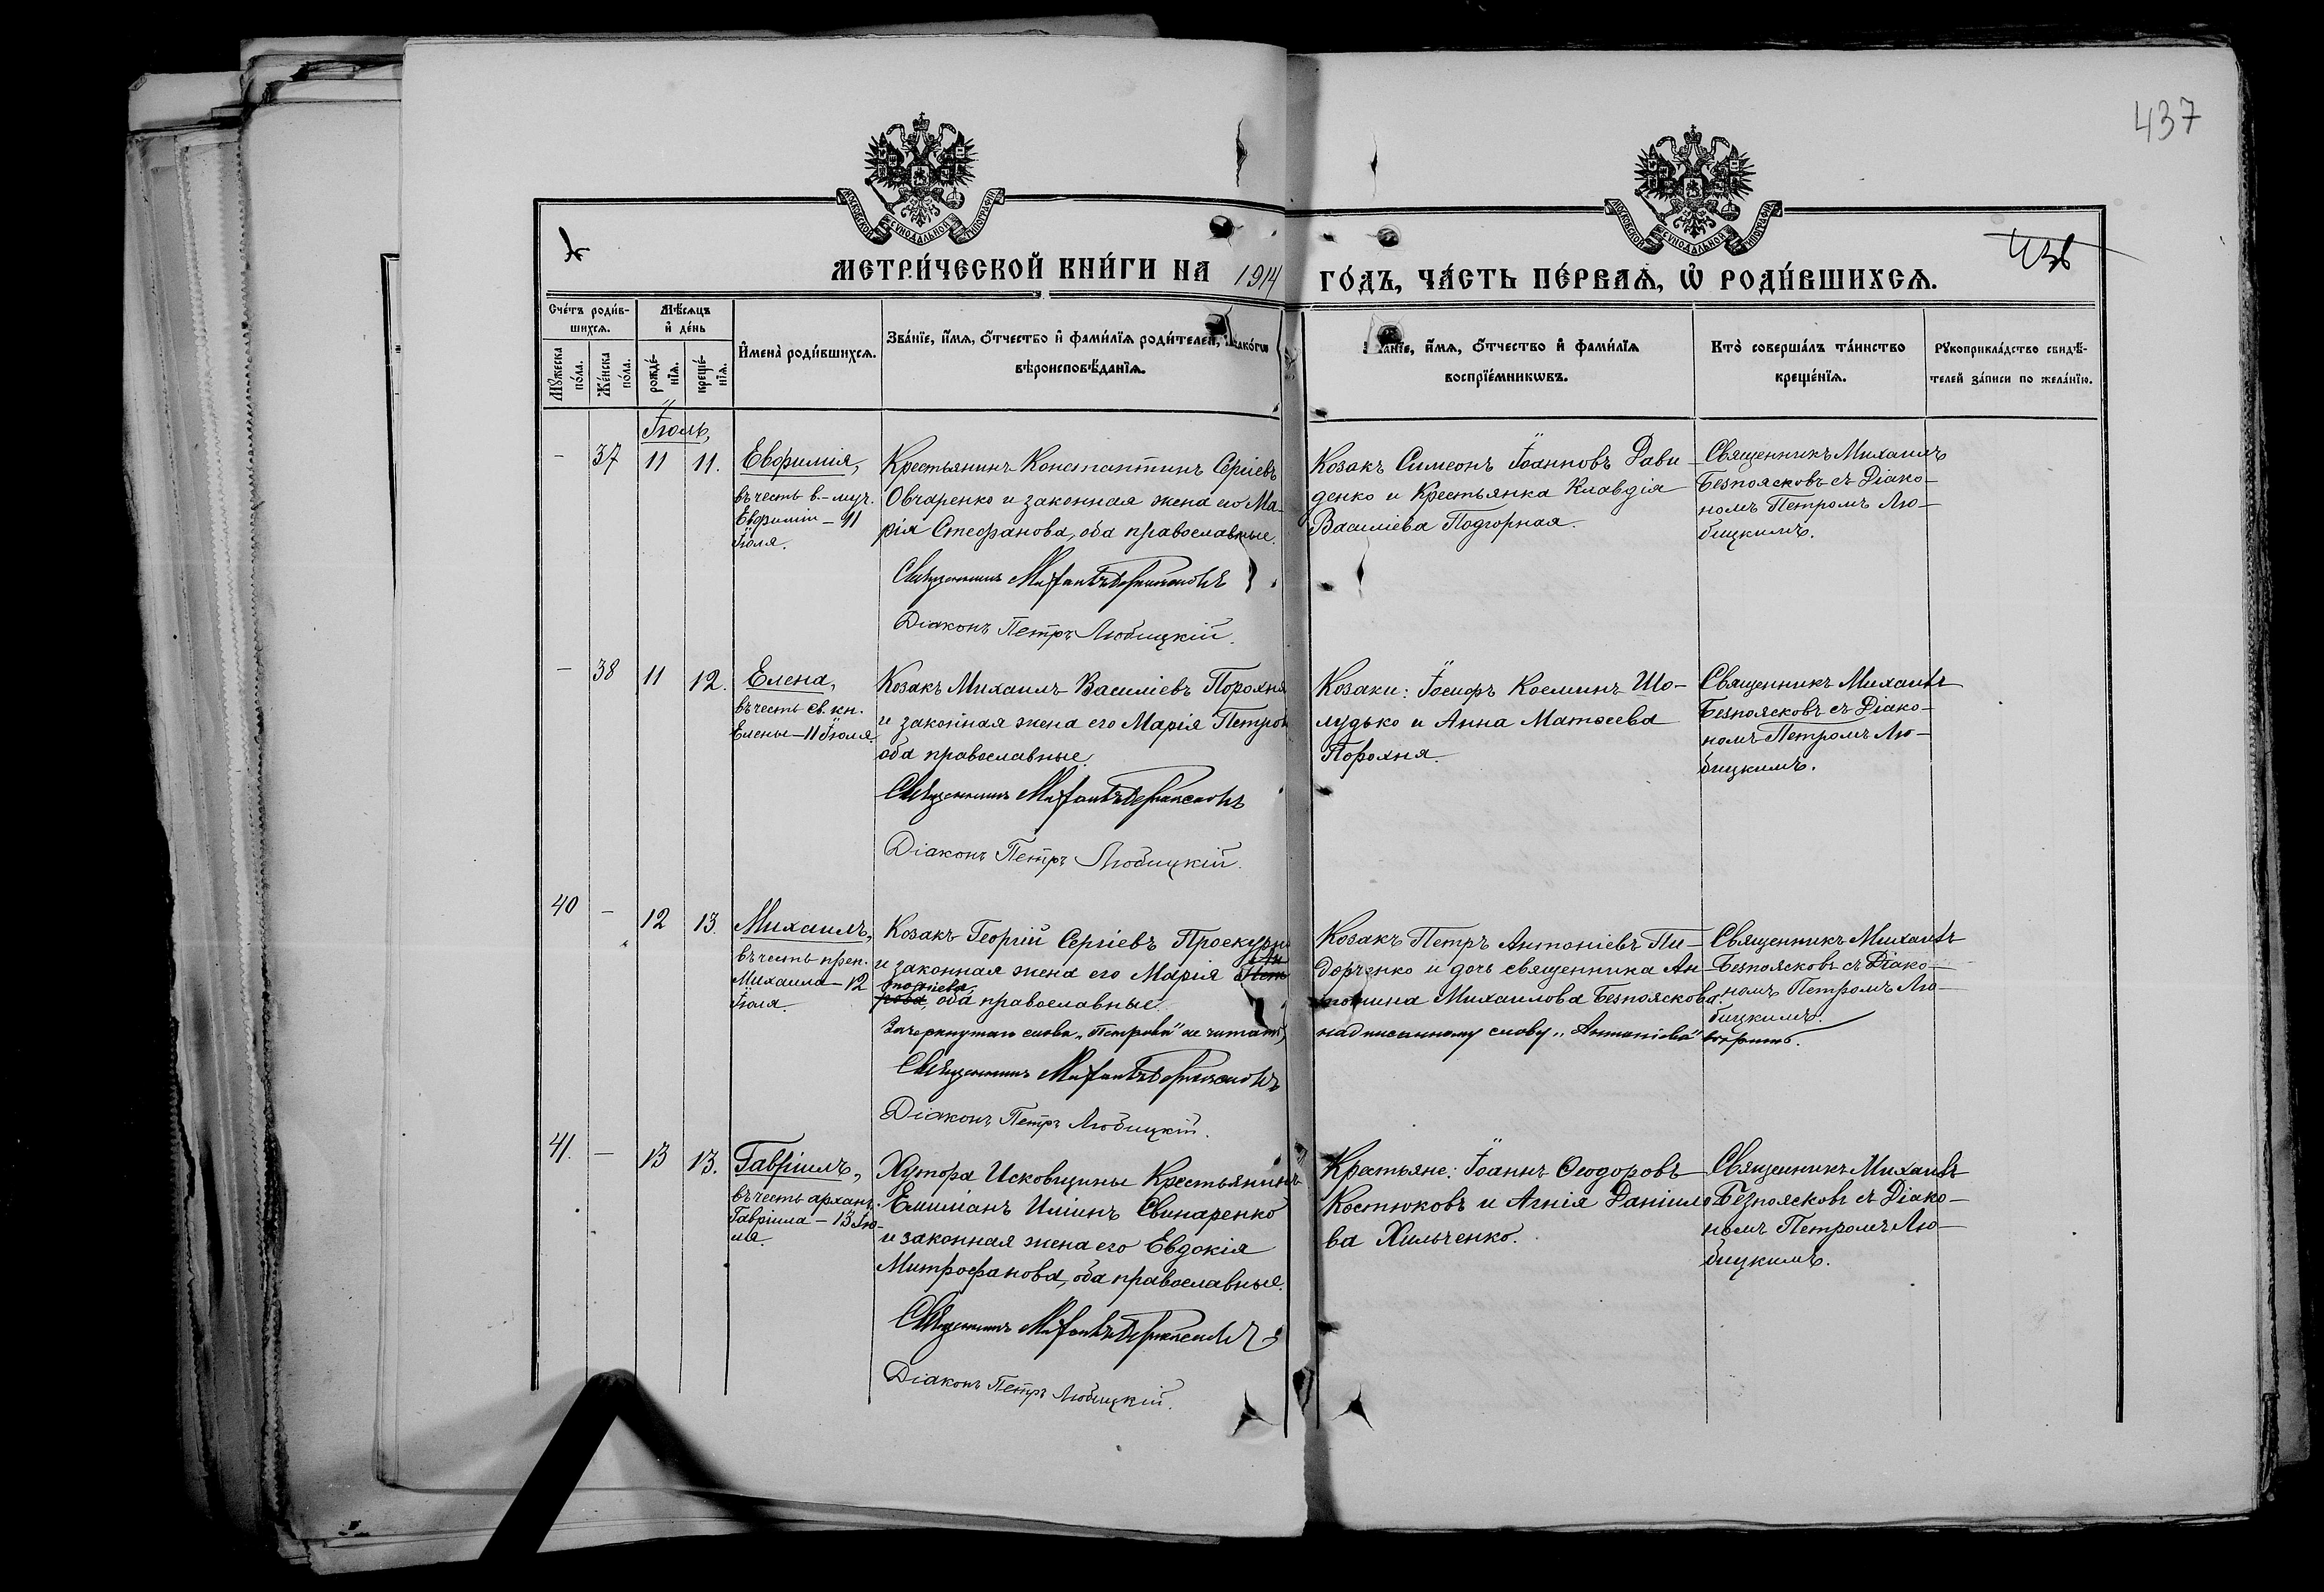 437
436
МОСКОВСКОЙ СѴНОДАЛЬНОЙ ТИПОГРАФІИ
МОСКОВСКОЙ СѴНОДАЛЬНОЙ ТИПОГРАФІИ
МЕТРИ́ЧЕСКОЙ КНИ́ГИ НА 1914 ГО́ДЪ, ЧА́СТЬ ПЕ́РВАѦ, Ѡ҆ РОДИ́ВШИХСѦ.
Сче́тъ роди́в-
шихсѧ.
Мꙋ́жеска по́ла.
Же́нска по́ла.
Мѣ́сѧцъ
и҆ де́нь
рожде́-
нїѧ.
креще́-
нїѧ.
И҆мена̀ роди́вшихсѧ.
Зва́нїе, и҆́мѧ, ѻ҆́тчество и҆ фамѝлїѧ роди́телей,
вѣроисповѣ́данїѧ.
и҆́мѧ, ѻ҆́тчество и҆ фамѝлїѧ
воспрїе́мникѡвъ.
Кто̀ соверша́лъ та́инство
креще́нїѧ.
Рꙋкоприкла́дство свидѣ́-
телей за́писи по жела́нїю.
Іюль,
– 37 11 11. Евфимія,
въ честь в.-муч.
Евфиміи – 11
Іюля.
Крестьянинъ Константинъ Сергіевъ
Овчаренко и законная жена его Ма-
рія Стефанова, оба православные.
Священникъ Михаилъ Безпоясковъ
Діаконъ Петръ Любицкій.
Козакъ Симеонъ Іоанновъ Дави-
денко и Крестьянка Клавдія
Василіева Подгорная.
Священникъ Михаилъ
Безпоясковъ съ Діако-
номъ Петромъ Лю-
бицкимъ.
– 38 11 12. Елена,
въ честь св. кн.
Елены – 11 Іюля.
Козакъ Михаилъ Василіевъ Порохня
и законная жена его Марія Петрова
оба православные.
Священникъ Михаилъ Безпоясковъ
Діаконъ Петръ Любицкій.
Козаки: Іосифъ Косминъ Шо-
лудько и Анна Матѳеева
Порохня.
Священникъ Михаилъ
Безпоясковъ съ Діако-
номъ Петромъ Лю-
бицкимъ.
40 – 12 13. Михаилъ,
въ честь преп.
Михаила – 12
Іюля.
Козакъ Георгій Сергіевъ
Ан
и законная жена его Марія Пет
тоніева
рова, оба православные.
Зачеркнутаго слова „Петрова" не читать,
Священникъ Михаилъ Безпоясковъ
Діаконъ Петръ Любицкій.
Козакъ Петръ Антоніевъ Пи-
дорченко и дочь священника Ан-
тонина Михаилова Безпояскова.
надписанному слову „Антоніева" вѣрить.
Священникъ Михаилъ
Безпоясковъ съ Діако-
номъ Петромъ Лю-
бицкимъ.
41. – 13 13. Гавріилъ,
въ честь арханг.
Гавріила – 13 Ію-
ля.
Хутора Исковщины Крестьянинъ
Емиліанъ Иліинъ Свинаренко
и законная жена его Евдокія
Митрофанова, оба православные.
Священникъ Михаилъ Безпоясковъ
Діаконъ Петръ Любицкій.
Крестьяне: Іоаннъ Ѳеодоровъ
Костюковъ и Агнія Даніило-
ва Хильченко.
Священникъ Михаилъ
Безпоясковъ съ Діако-
номъ Петромъ Лю-
бицкимъ.